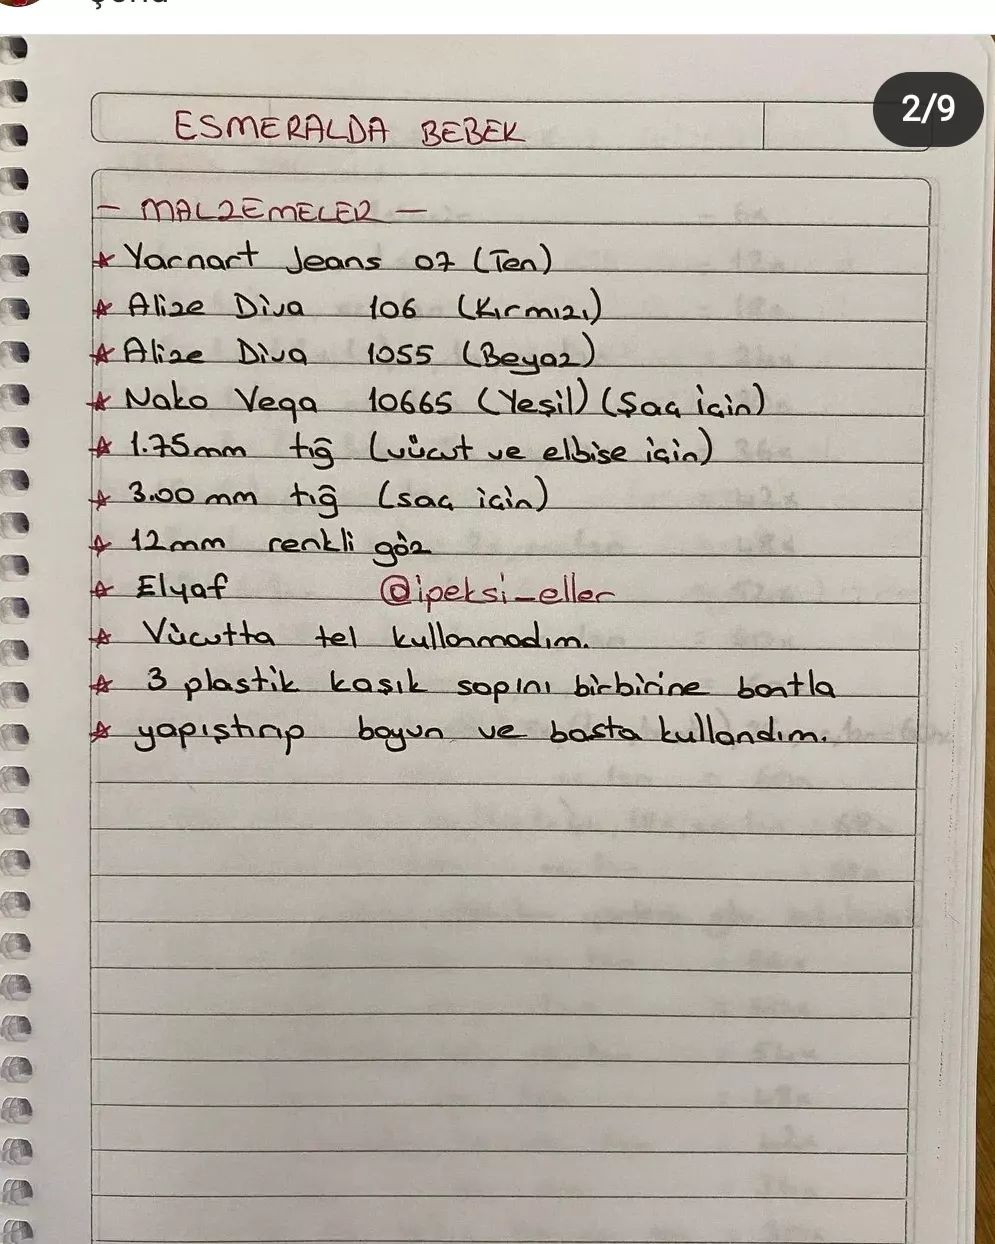 2/9
ESMERALDA BEBEK
- MALZEMELER -
* Yarnart Jeans 07 (Ten)
* Alize Diva 106 (Kırmızı)
* Alize Diva 1055 (Beyaz)
* Nako Vega 10665 (Yeşil) (Saç için)
* 1.75mm tığ (vücut ve elbise için)
* 3.00 mm tığ (saç için)
* 12mm renkli göz
* Elyaf @ipeksi_eller
* Vücutta tel kullanmadım.
* 3 plastik kaşık sapını birbirine bantla
* yapıştırıp boyun ve başta kullandım.